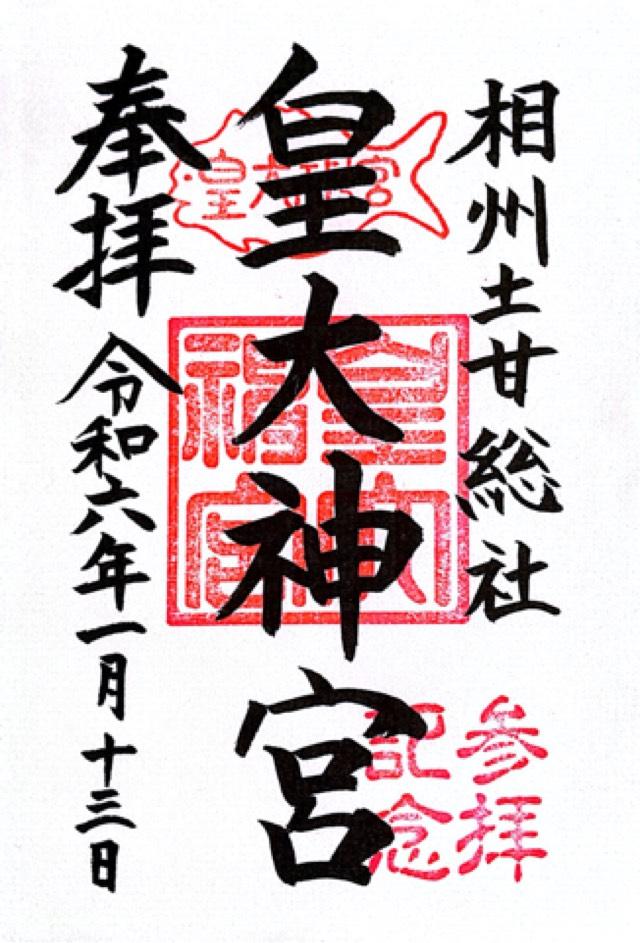 相州土甘総社
皇大神宮
奉拝
令和六年一月十三日
皇大神宮
参拝
記念